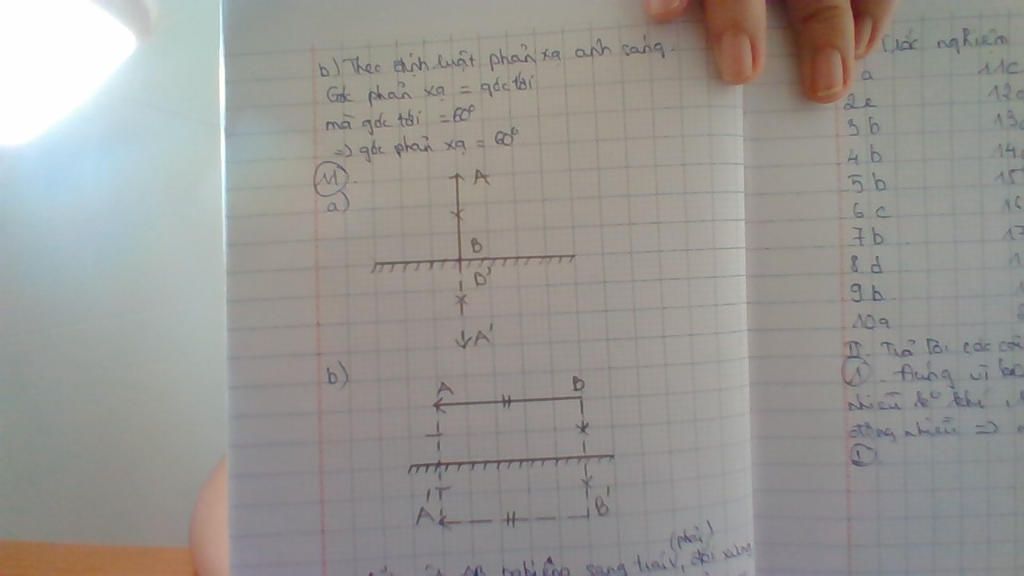 b) Theo định luật phản xạ ánh sáng.
Góc phản xạ = góc tới
mà góc tới = 60°
=> góc phản xạ = 60°
11
a)
A
B
B'
A'
b)
A B
A' B'
(phải)
AB nghiêng sang trái, đối xứng
Trắc nghiệm
a 11c
2c 12
3b 13
4b 14
5b 15
6c 16
7b 17
8d 1
9b 1
10a
II. Trả lời các
1. Đúng vì
nhiều khí,
nhiều =>
1